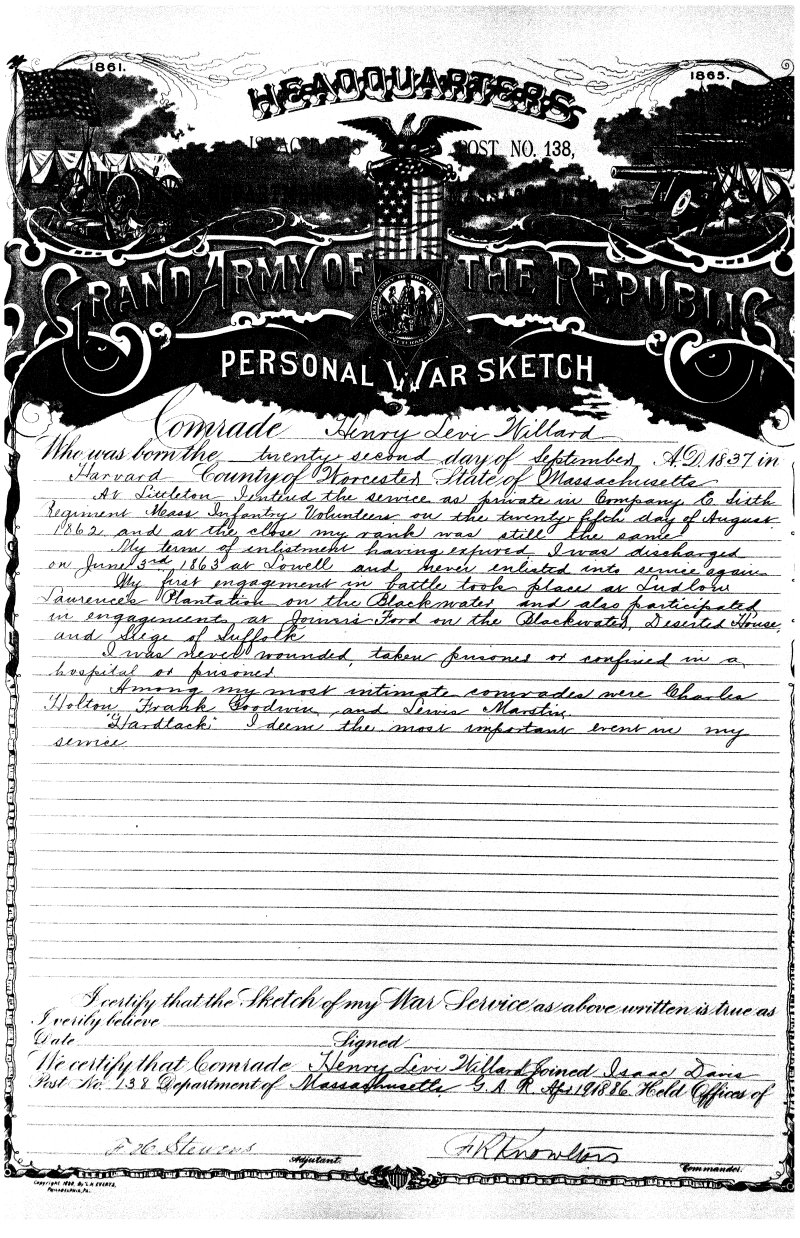 1861.
1865.
HEADQUARTERS
POST NO. 138,
GRAND ARMY OF THE REPUBLIC
PERSONAL WAR SKETCH
Comrade Henry Levi Willard
Who was born the twenty second day of September A.D. 1837 in
Harvard County of Worcester State of Massachusetts
At Littleton I entered the service as private in Company E Sixth
Regiment Mass Infantry Volunteers on the twenty fifth day of August
1862 and at the close my rank was still the same
My term of enlistment having expired I was discharged
on June 3rd 1863 at Lowell and never enlisted into service again
My first engagement in battle took place at Ludlow
Laurences Plantation on the Blackwater and also participated
in engagements at Joiners Ford on the Blackwater, Deserted House,
and Siege of Suffolk
I was never wounded, taken prisoner or confined in a
hospital or prisoner
Among my most intimate comrades were Charles
Holton, Frank Goodwin, and Lewis
"Hardtack" I deem the most important event in my
service
I certify that the Sketch of my War Service as above written is true as
I verily believe
Date Signed
We certify that Comrade Henry Levi Willard Joined Isaac Davis
Post No. 138 Department of Massachusetts G.A.R. Apr 19 1886 Held Offices of
F H Stevens
F R Knowlton
Adjutant.
Commander.
Copyright 
Philadelphia, Pa.